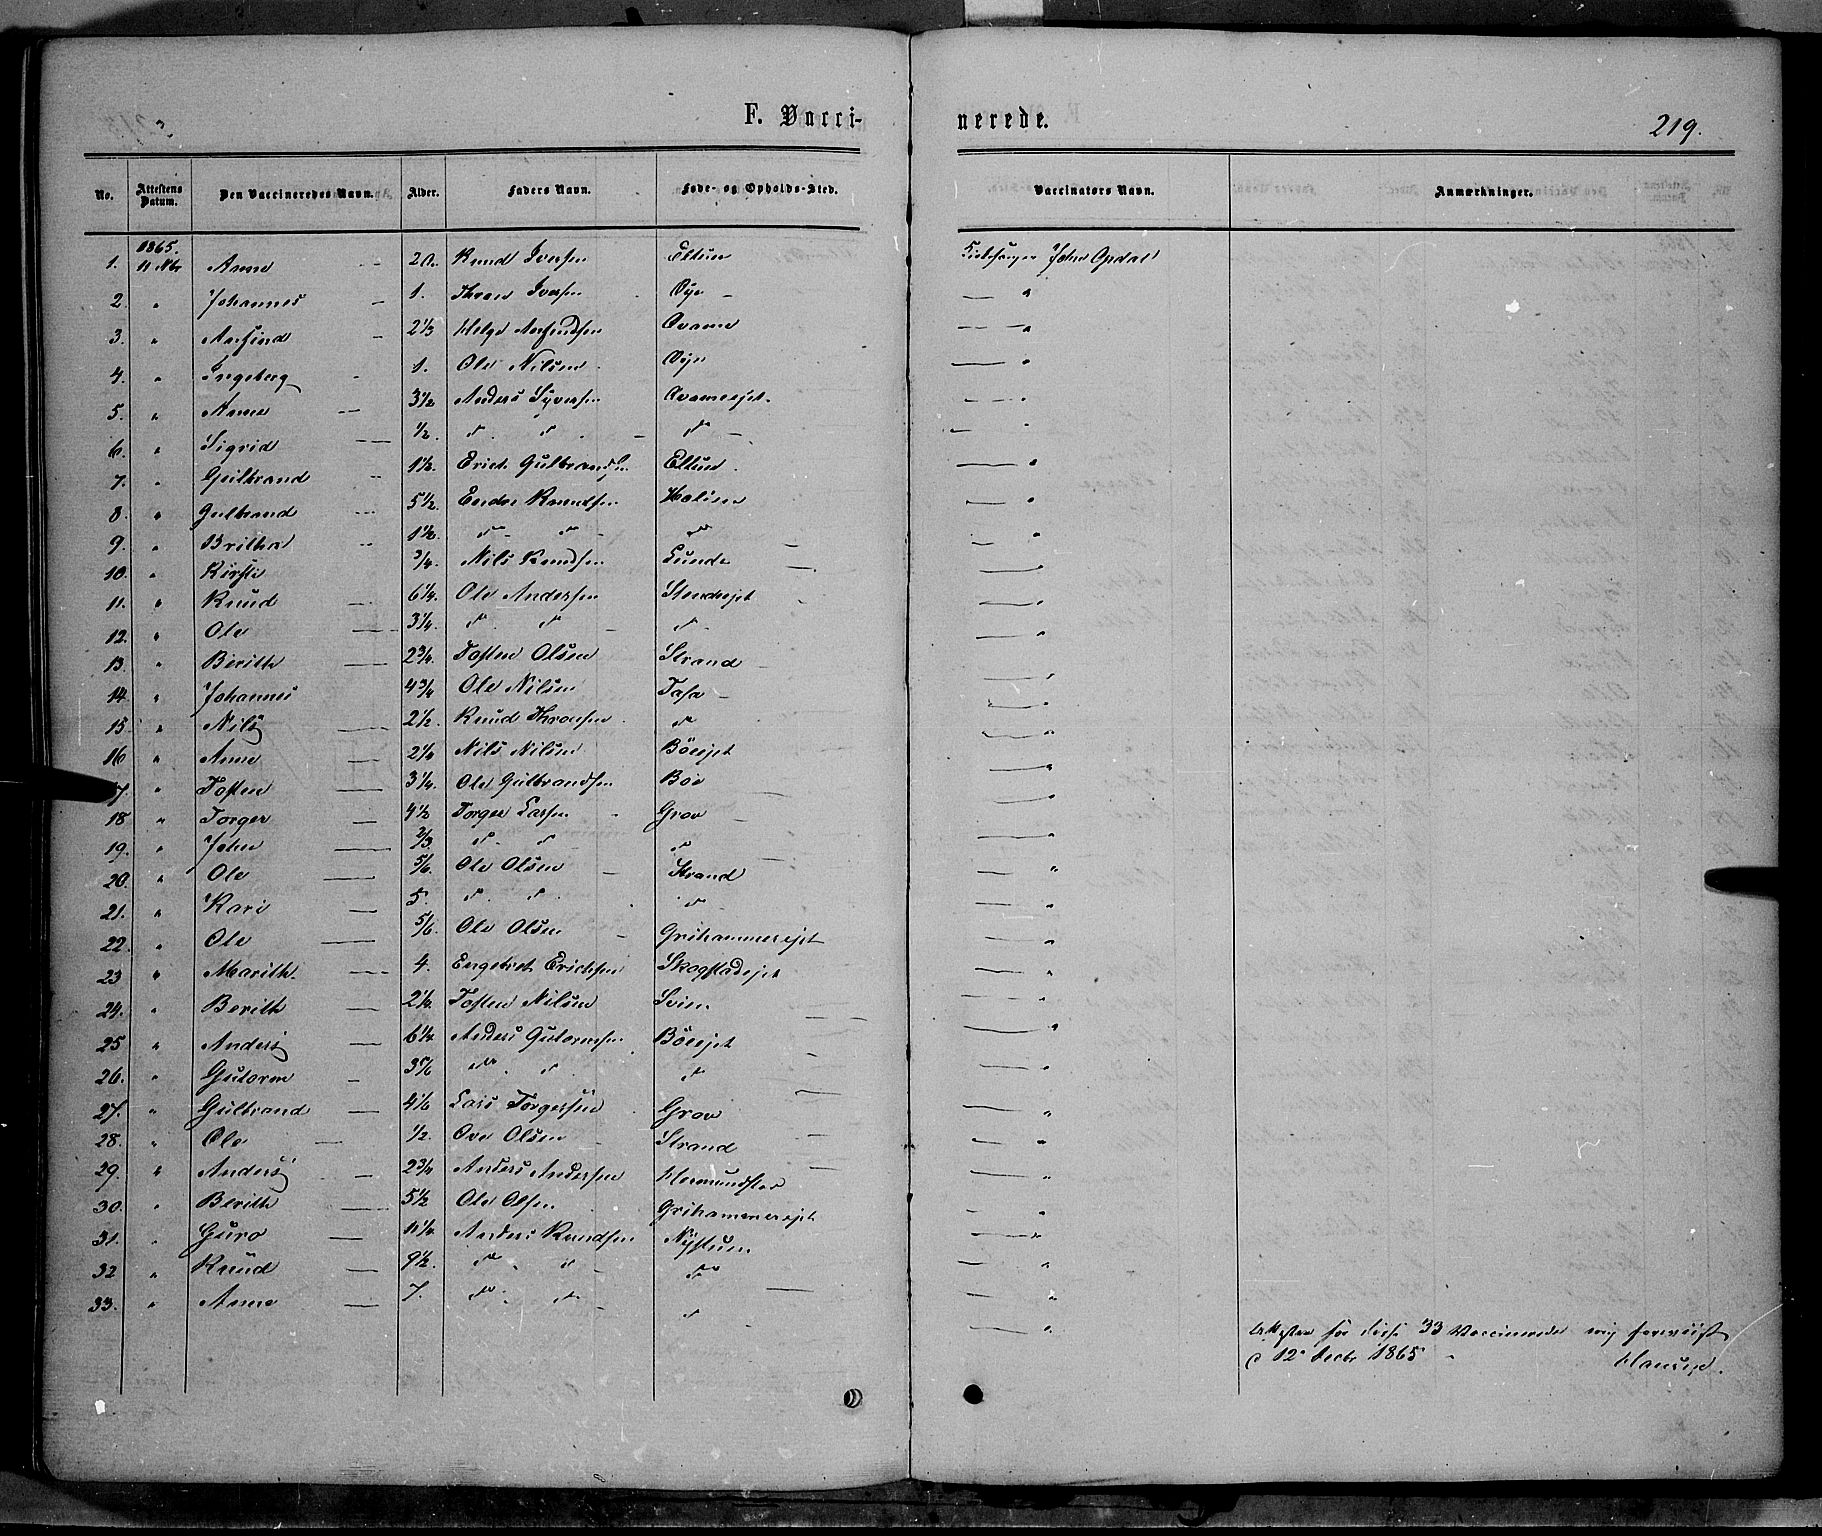 F. Vacci-
nerede.
219.
No. Attestens Datum. Den Vaccineredes Navn. Alder. Faders Navn. Føde- og Opholds-Sted. Vaccinators Navn. Anmærkninger.
1865.
1. 11 Nbr Anne Knud Iversen Eltun John Opdal
2. " Johannes 1. Thron Iversen Øye — "
3. " 2 1/3 Helge Qvame — "
4. " Ingeberg 1. Ole Nilsen Øye — "
5. " Anne 3 1/2 Anders Syversen Qvameejet. — "
6. " Sigrid — 1/2 " " " — "
7. " Gulbrand 1 1/2. Erick Gulbrands. Eltun. — "
8. " Gulbrand 5 1/2. Endre Knudsen — "
9. " Britha 1 1/2. " " " — "
10. " Kirsti 3/4. Nils Knudsen Lunde — "
11. " Knud 6 1/4. Ole Andersen — "
12. " Ole — 3 1/4. " " " — "
13. " Berith — 2 3/4. Tosten Olsen Strand — "
14. " Johannes 4 3/4 Ole Nilsen — "
15. " Nils — 2 1/2. Knud Thronsen " — "
16. " Anne — 2 1/4 Nils Nilsen Böeejet — "
17. " Tosten 3 1/4. Ole Gulbrandsen Böe — "
18 " Torger — 4 1/2 Torger Larsen Grov — "
19. " John — 2/3. " " " — "
20. " Ole — 5/6. Ole Olsen Strand — "
21. " Kari — 5. " " " — "
22. " Ole — 5/6. Ole Olsen Grihammerejet — "
23 " Marith — 4. Engebret Ericksen Skogstadejet — "
24. " Berith — 2 1/4. Tosten Nilsen — "
25 " Anders 6 1/4 Anders Gutormsen Böeejet — "
26. " Gutorm — 3 5/6 " " " — "
27. " Gulbrand — 4 1/6 Lars Torgersen Grov — "
28. " Ole — 1/2. Ove Olsen Strand — "
29. " Anders — 2 3/4 Anders Andersen Hermundstad — "
30. " Berith — 5 1/2 Ole Olsen Grihammerejet — "
31. " Guro — 11 1/4 Anders Knudsen Nÿstuen — "
32 " Knud — 9 1/2. " " " — "
33. " Anne — 7. " " " — "
for disse 33 Vaccinerede mig foreviist
d 12 Decbr 1865